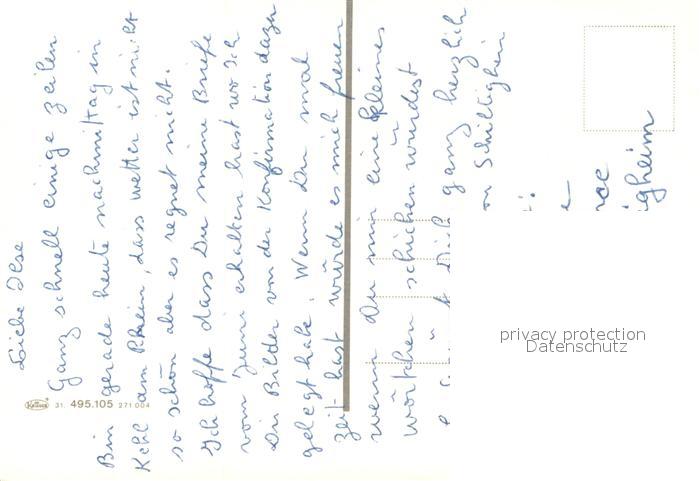 Liebe Ilse
Ganz schnell einige zeilen
Bin gerade heute nachmittag in
Kehl am Rhein, dass wetter ist nicht
so schön aber es regnet nicht.
Ich hoffe dass Du meine Briefe
vom Juni erhalten hast wo ich
Dir Bilder von der Konfirmation dazu
gelegt habe. Wenn Du mal
zeit hast würde es mich freuen
wenn Du mir eine kleines
wörtchen schicken würdest
ganz herzlich
Schiltigheim
igheim
31. 495.105 271 004
privacy protection
Datenschutz